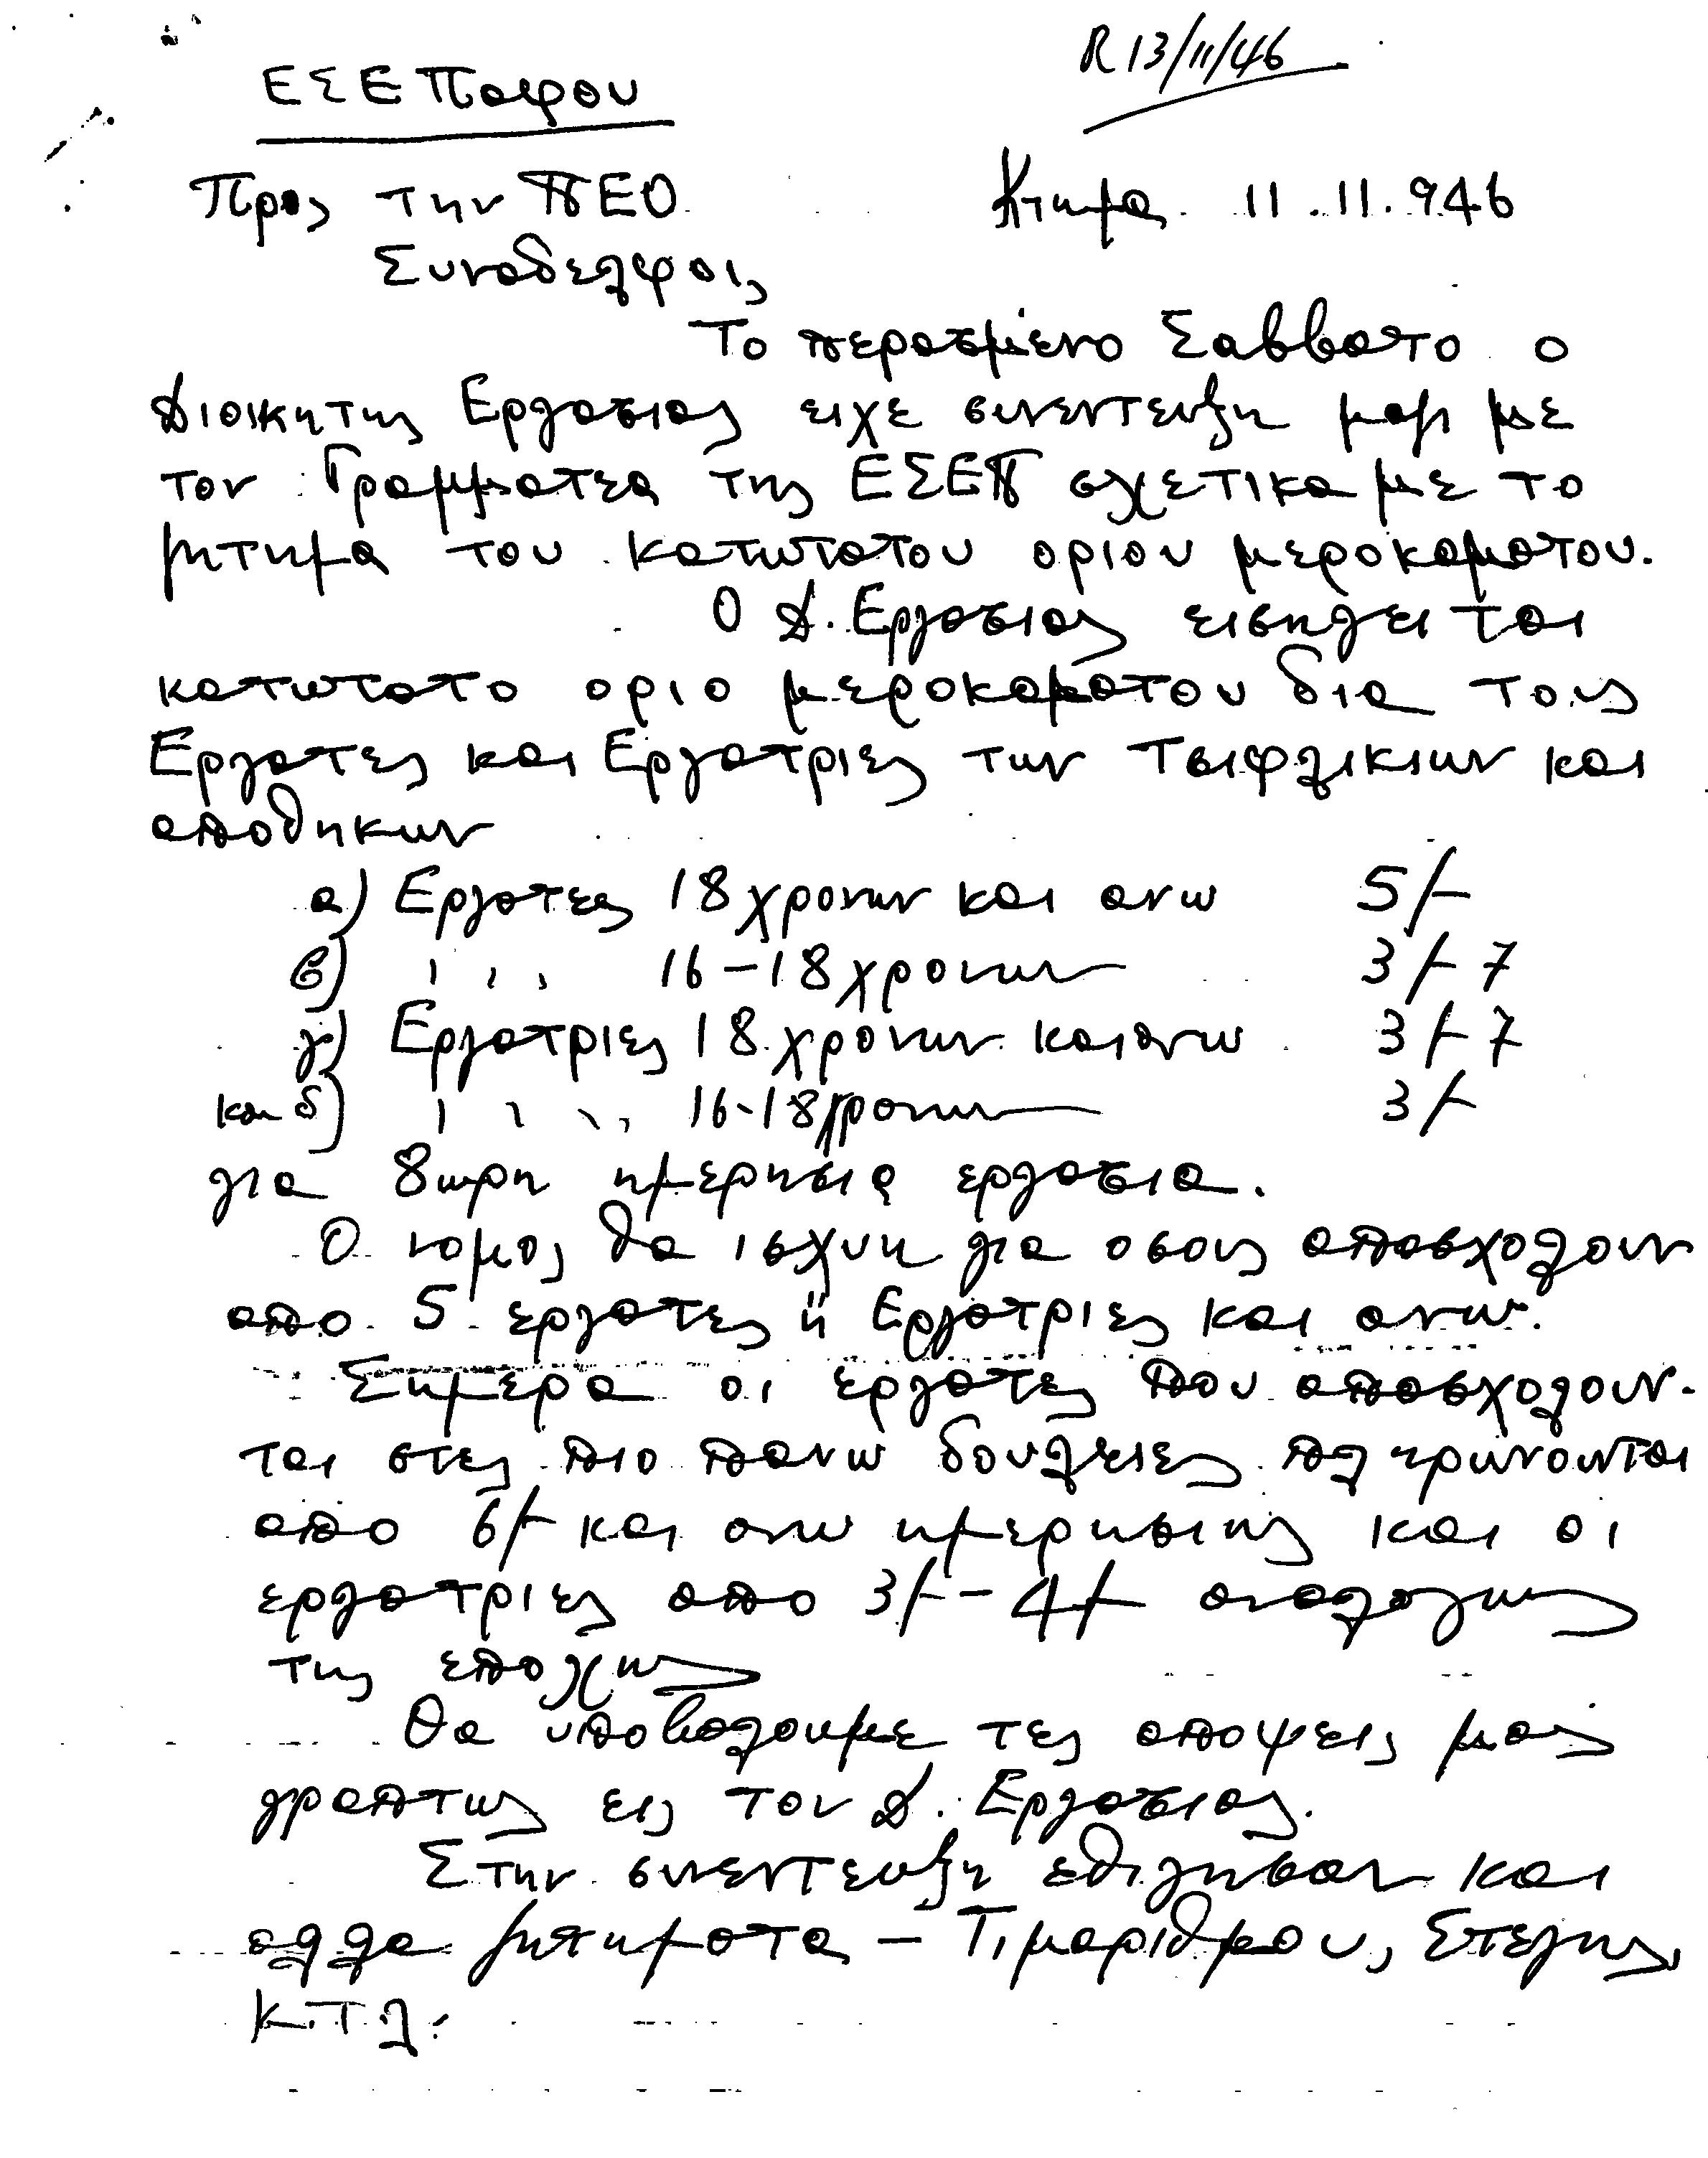 R 13/11/46
ΕΣΕ Παφου
Προς την ΠΕΟ Κτημα 11.11.946
Συναδελφοι,
Το περασμένο Σαββατο ο
Διοικητης Εργασιας ειχε συνεντευξη μαζι με
τον Γραμματεα της ΕΣΕΠ σχετικα με το
ζητημα του κατωτατου οριου μεροκαματου.
Ο Δ. Εργασιας εισηγειται
κατωτατο οριο μεροκαματου δια τους
Εργατες και Εργατριες των Τσιφλικιων και
αποθηκων
α) Εργατες 18 χρονων και ανω 5/-
β) , , , 16-18 χρονων 3/- 7
γ) Εργατριες 18 χρονων και ανω 3/- 7
και δ) , , , , 16-18 χρονων 3/-
για 8ωρη ημερησια εργασια.
Ο νομος θα ισχυη για οσους απασχολουν
απο 5 εργατες ή Εργατριες και ανω.
Σημερα οι εργατες που απασχολουν-
ται στες πιο πανω δουλειες πληρώνονται
απο 6/- και ανω ημερησιως και οι
εργατριες απο 3/- - 4/- αναλογως
της εποχης
Θα υποβαλουμε τες αποψεις μας
γραπτως εις τον Δ. Εργασιας.
Στην συνεντευξη εθιγησαν και
αλλα ζητηματα – Τιμαριθμου, Στεγης,
κ.τ.λ.